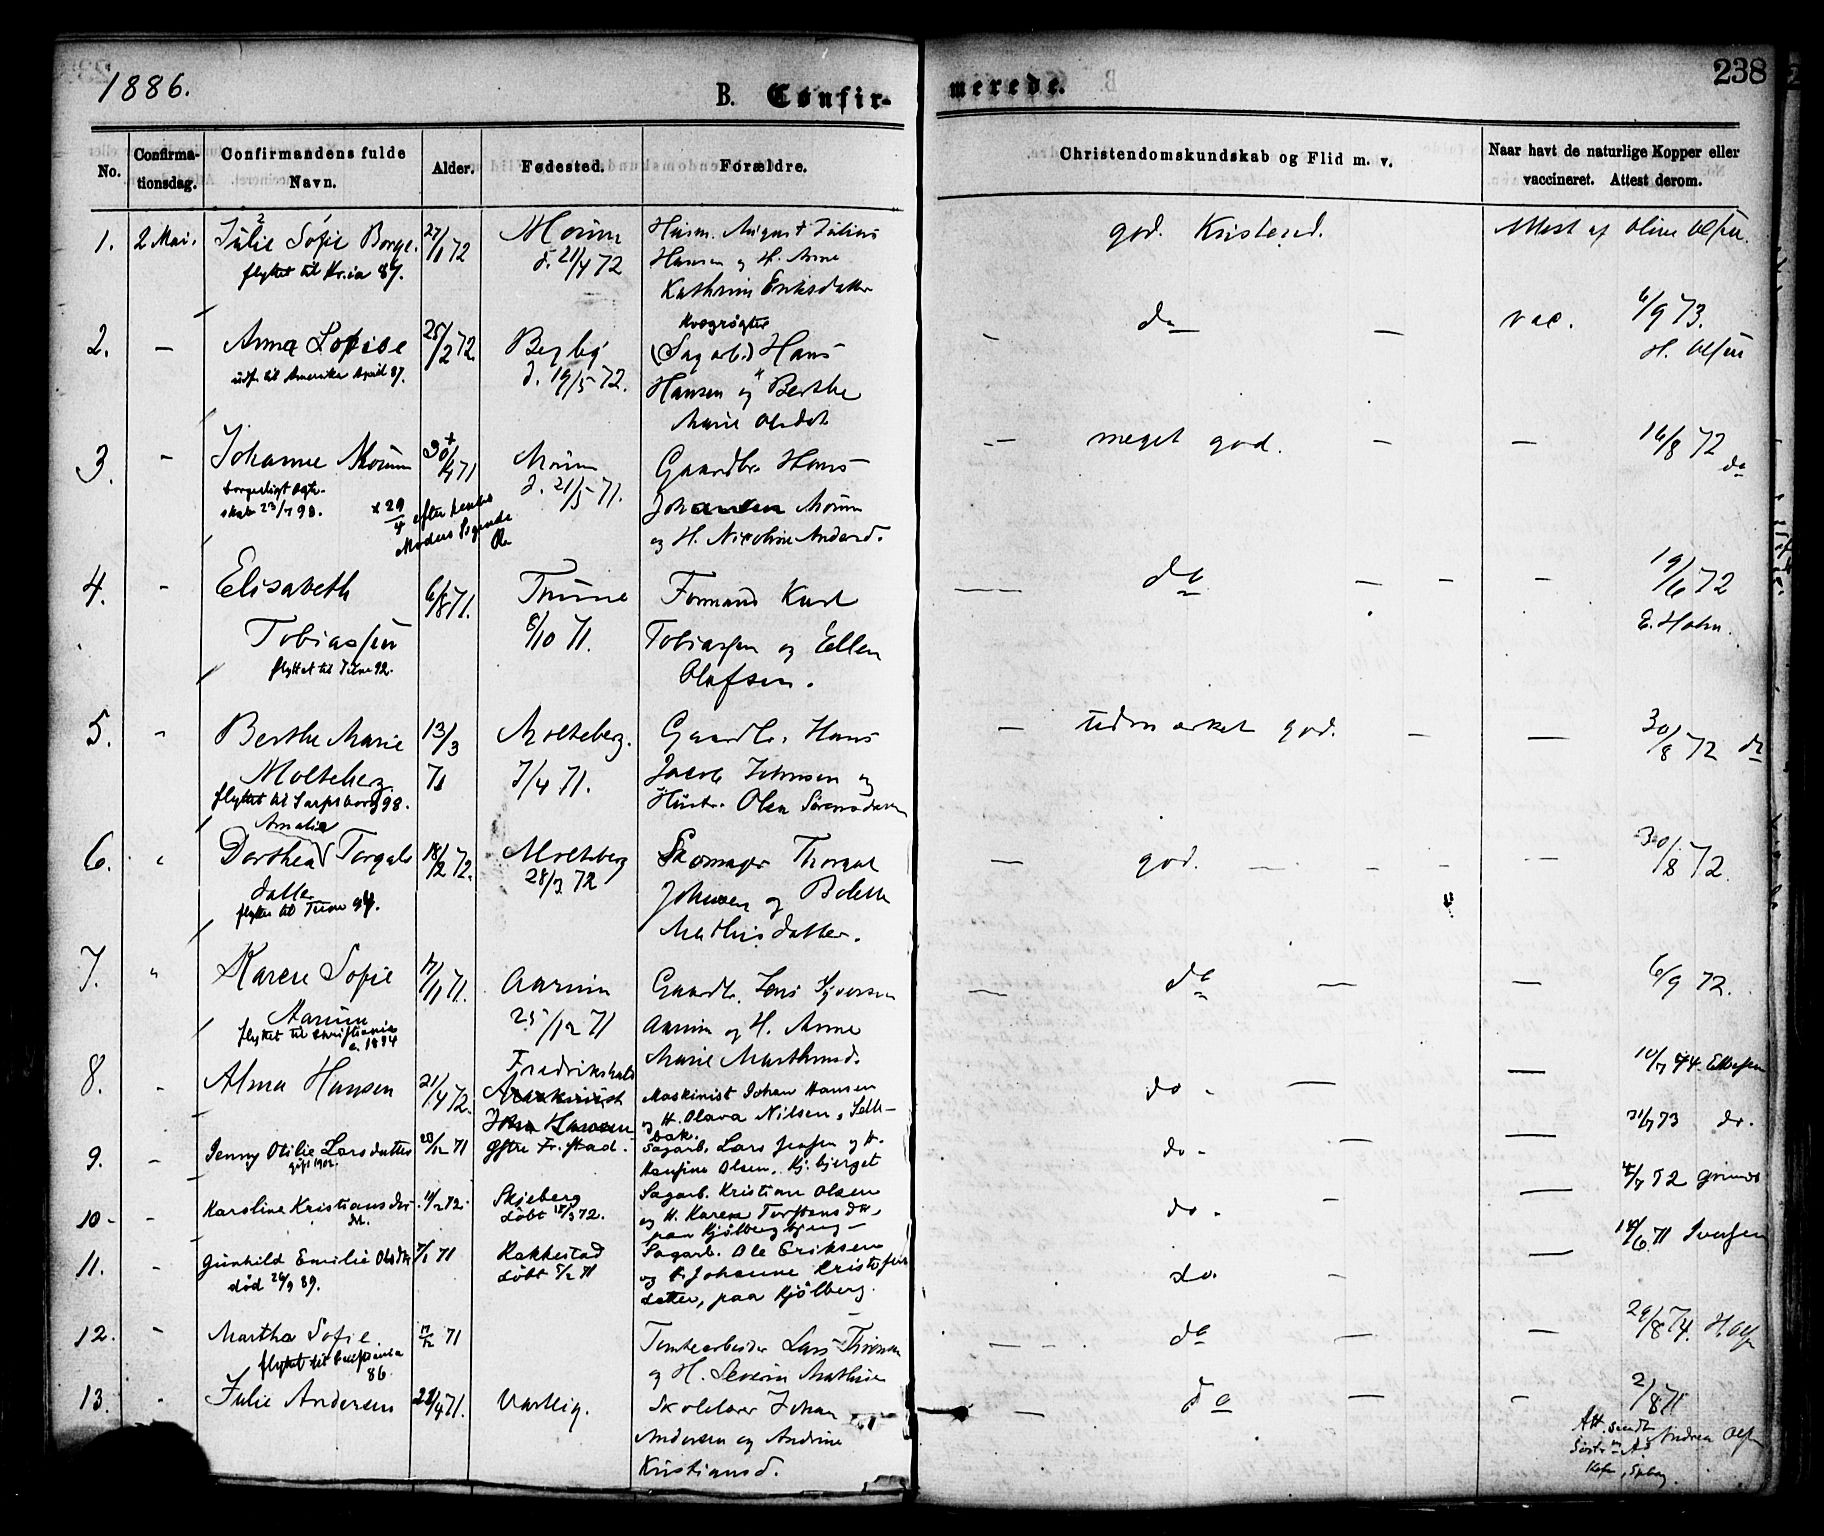 1886.
B. Confir-
merede.
238
No.
Confirma-
tionsdag.
Confirmandens fulde
Navn.
Alder.
Fødested.
Forældre.
Christendomskundskab og Flid m. v.
Naar havt de naturlige Kopper eller
vaccineret. Attest derom.
1. 2 Mai. Julie Sofie Borge. 27/1 72
flyttet til Kr.ia 87.
d. 21/4 72
Husm. August Julius
Hansen og H. Anne
Kathrine Eriksdatter
god. Kristend.
Attest af Oline Olsen.
2. — Anna Lovise 25/2 72.
udf. til Amerika April 87.
Begby
d. 19/5 72.
(Sagarb.) Hans
Hansen og Berthe
Marie Olsdat
do —
vac. 6/9 73.
H. Olsen
3. Johanne Morum
borgerligt ægte-
skab 23/7 98.
x 29/4 efter hendes
Moders Sigende
Morum
d. 21/5 71.
Gaardbr. Hans
Johansen Morum
og H. Nicoline Anders d.
— meget god. — —
16/8 72
do
4. Elisabeth 6/8 71.
Tobiassen
flyttet til Tune 92.
Thune
8/10 71.
Formand Karl
Tobiassen og Ellen
Olafsen.
do — — —
19/6 72
E. Holm.
5. Berthe Marie 13/3
Molteberg 71
flyttet til Sarpsborg 98.
Molteberg.
7/4 71.
Gaardbr. Hans
Jacob Johnsen og
Hustr. Olea Sørensdatter
— udmærket god. — —
30/8 72 do
6. Amalie
Dorthea Torgals 18/2 72.
datter
flyttet til Tune 94.
Molteberg
28/3 72
Skomager Thorgal
Johnsen og Bolette
Mathisdatter.
— god. — — — —
30/8 72
7. Karen Sofie 17/11 71.
Aarum
flyttet til Christiania
1894
Aarum
25/12 71
Gaardbr. Jens Syversen
Aarum og H. Anne
Marie Marthinusd.
— do — —
6/9 72.
8. Alma Hansen 21/4 72.
Fredrikshald
Maskinist
John Hansen
Maskinist Johan Hansen
og H. Olava Nilsen, Selle-
bak.
do - — —
10/7 74.
9. Jenny Otilie Larsdatter 28/12 71
gift 1902.
Østre Fr.stad.
Sagarb. Lars Jensen og H.
Hansine Olsen. Kj.bjerget
do - — —
31/7 73 do.
10 - Karoline Kristiansdat-
dt.
11/2 72.
Skjeberg
døbt 17/3 72.
Sagarb. Kristian Olsen
og H. Karen Torstensdtr.
paa Kjølbergbjerg —
do - — —
11. Gunhild Emilie Olsdtr 7/1 71
død 26/9 89.
Rakkestad
døbt 5/2 71
Sagarb. Ole Eriksen
og H. Johanne Kristofers
datter, paa Kjølberg.
do. — —
14/6 71 Iversen
12. Martha Sofie 17/12 71
flyttet til
86
Tomtearbeider Lars Thoresen
og H. Severin Mathisen
do — —
29/8 74.
13. Julie Andersen 28/4 71.
Varteig.
Skolelærer Johan
Andersen og Andrine
Kristiansd.
— do — -
2/8 71
Att. sendt
Andrea Olsen